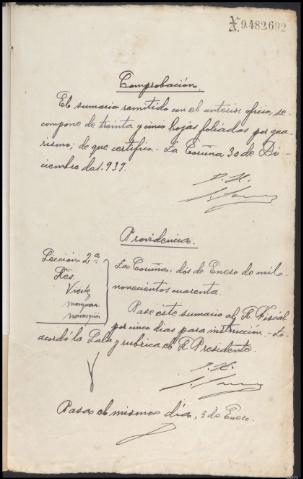 N 9.482.692
Comprobación.
El sumario remitido con el anterior oficio, se
compone de treinta y cinco hojas foliadas por gua-
rismo, de que certifico. La Coruña 30 de Di-
ciembre de 1.939.
Providencia.
Sección 2ª
La Coruña, dos de Enero de mil
novecientos cuarenta.
Pase este sumario al Sr. Fiscal
por cinco días para instrucción. Lo
acordó la Sala y rubrica el Sr. Presidente.
Pasa el mismo día, 2 de Enero.